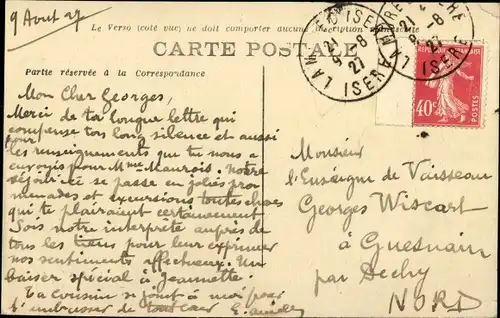 9 Aout 27
Le Verso (côté vue) ne doit comporter aucune inscription manuscrite
CARTE POSTALE
Partie réservée à la Correspondance
LA MURE ISERE
21 9-8 27
LA MURE ISERE
21 9-8 27
40c
Mon Cher Georges,
Merci de ta longue lettre qui
compense ton long silence et aussi
pour
les renseignements que tu nous a
envoyés pour Mme Maurois. Notre
séjour ici se passe en jolies pro
menades et excursions toutes choses
qui te plairaient certainement
Sois notre interprète auprès de
tous les tiens pour leur exprimer
nos sentiments affectueux. Un
baiser spécial à Jeannette.
Ta cousine se joint à moi pour
t'embrasser de tout cœur
Monsieur
l'Enseigne de Vaisseau
Georges Wiscart
à Guesnain
par Dechy
NORD